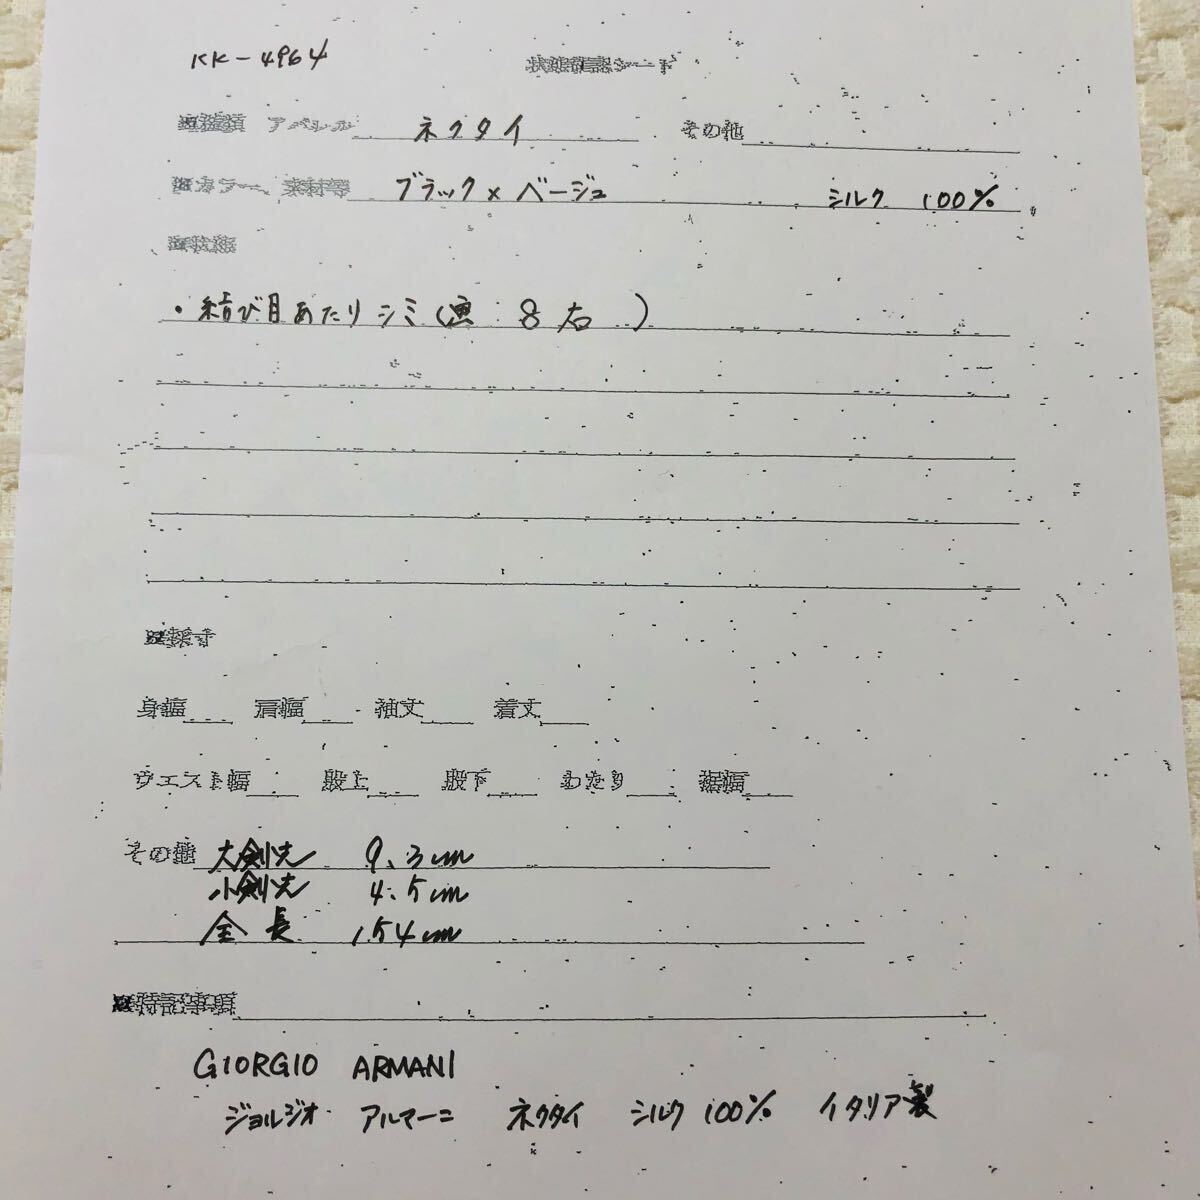 KK-4964 状態確認シート
■種類 アパレル ネクタイ その他
■カラー、素材等 ブラック×ベージュ シルク 100%
■状態
・結び目あたりシミ(画:8右)
■採寸
身幅 肩幅 袖丈 着丈
ウエスト幅 股上 股下 わたり 裾幅
その他 大剣先 9.3cm
小剣先 4.5cm
全長 154cm
■特記事項
GIORGIO ARMANI
ジョルジオ アルマーニ ネクタイ シルク100% イタリア製